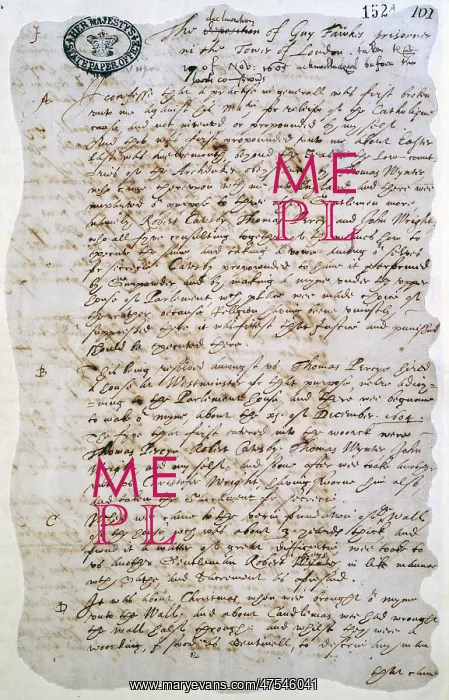 152A 101
HER MAJESTY'S STATE PAPER OFFICE
declaration
The deposition of Guy Fawkes prisonner
in the Tower of London. taken the
of Nov: 1605 acknowledged before the
Lords comiss
A
I confesse that a practise in generall was first broken
unto me against his Ma for releife of the Catholique
cause and not invented or propounded by my self.
And this was first propounded unto me about Easter
last was twelvemonth beyond the Seas in the Low-count
of the Archdukes by Thomas Wynter
who came thereupon with me into England and there wee
to three Gentlemen more
namely Robert Catesby Thomas Percy and John Wright
who all five consulting together of the meanes how to
execute the same and taking a vowe among o selves
for secrecie Catesby propounded to have it performed
by Gunpowder and by making a myne under the upper
house of Parliament
because Religion having bene unjustly
suppressed there it was fittest that Justice and punishment
should be executed there.
B
This being resolved amongst us Thomas Percy hired
a house at Westminster for that purpose, neere adioy-
ning to the Parliament house and there wee beganne
to make o myne about the xi of December. 1604.
The fyve that first entered into the woorck were
Thomas Percy Robert Catesby Thomas Wynter John
Wright and my self, and soone after wee tooke another
Christofer Wright having sworne him also
and taken the Sacrament for secrecie.
C
When wee came to the verie foundation of the Wall
of the house was about 3 yeards thick, and
found it a matter of great difficultie wee tooke to
us another Gentleman Robert Wynter in like manner
with oathe and Sacrament as aforesaid.
D
It was about Christmas when wee brought o myne
unto the Wall, and about Candlemas wee had wrought
the Wall halfe through: and whilst they were a
woorking, I stoode as Sentinell, to descrie any man
that came
ME
PL
ME
PL
www.maryevans.com/47546041